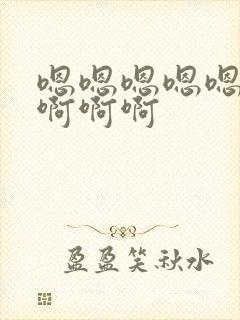 嗯嗯嗯嗯嗯
啊啊啊
盈盈笑秋水